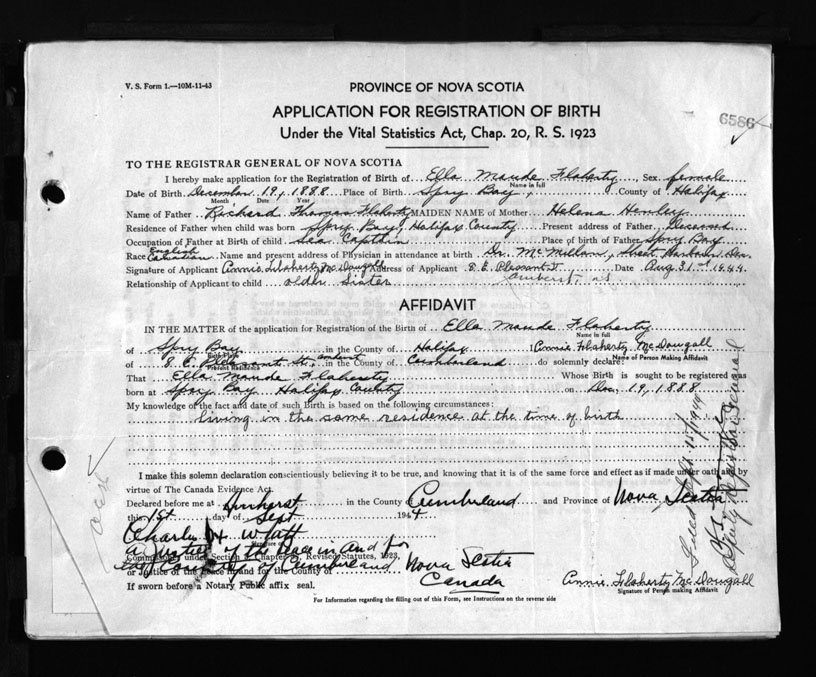 V. S. Form 1.—10M-11-43
PROVINCE OF NOVA SCOTIA
6586
APPLICATION FOR REGISTRATION OF BIRTH
Under the Vital Statistics Act, Chap. 20, R. S. 1923
TO THE REGISTRAR GENERAL OF NOVA SCOTIA
I hereby make application for the Registration of Birth of Ella Maude Flaherty, Sex female
Name in full
Date of Birth December 19, 1888 Place of Birth Spry Bay, County of Halifax
Month, Date, Year
Name of Father Richard Thomas Flaherty MAIDEN NAME of Mother Helena Henley
Residence of Father when child was born Spry Bay, Halifax County Present address of Father Deceased
Occupation of Father at Birth of child Sea Captain Place of birth of Father Spry Bay
Race English Canadian Name and present address of Physician in attendance at birth Dr. McMillan, Sheet Harbour
Signature of Applicant Annie Flaherty McDougall Address of Applicant Pleasant St Date Aug 31st 1944
Amherst, N.S.
Relationship of Applicant to child older sister
AFFIDAVIT
IN THE MATTER of the application for Registration of the Birth of Ella Maude Flaherty
Name in full
of Spry Bay in the County of Halifax I Annie Flaherty McDougall
Birth Place Name of Person Making Affidavit
of Pleasant St. Amherst, in the County of Cumberland do solemnly declare:
Present Residence
That Ella Maude Flaherty Whose Birth is sought to be registered was
born at Spry Bay Halifax County on Dec. 19, 1888
My knowledge of the fact and date of such Birth is based on the following circumstances:
living in the same residence at the time of birth
I make this solemn declaration conscientiously believing it to be true, and knowing that it is of the same force and effect as if made under oath and by
virtue of The Canada Evidence Act.
Declared before me at Amherst in the County of Cumberland and Province of Nova Scotia
this 1st day of Sept 1944
Charles H. Wyatt
Signature of
A Justice of the Peace in and for
Commissioner under Section Chapter Revised Statutes, 1923,
the County of Cumberland Nova Scotia
or Justice of the Peace in and for the County of
Canada
If sworn before a Notary Public affix seal.
Annie Flaherty McDougall
Signature of Person making Affidavit
For Information regarding the filling out of this Form, see Instructions on the reverse side
Deputy Registrar General